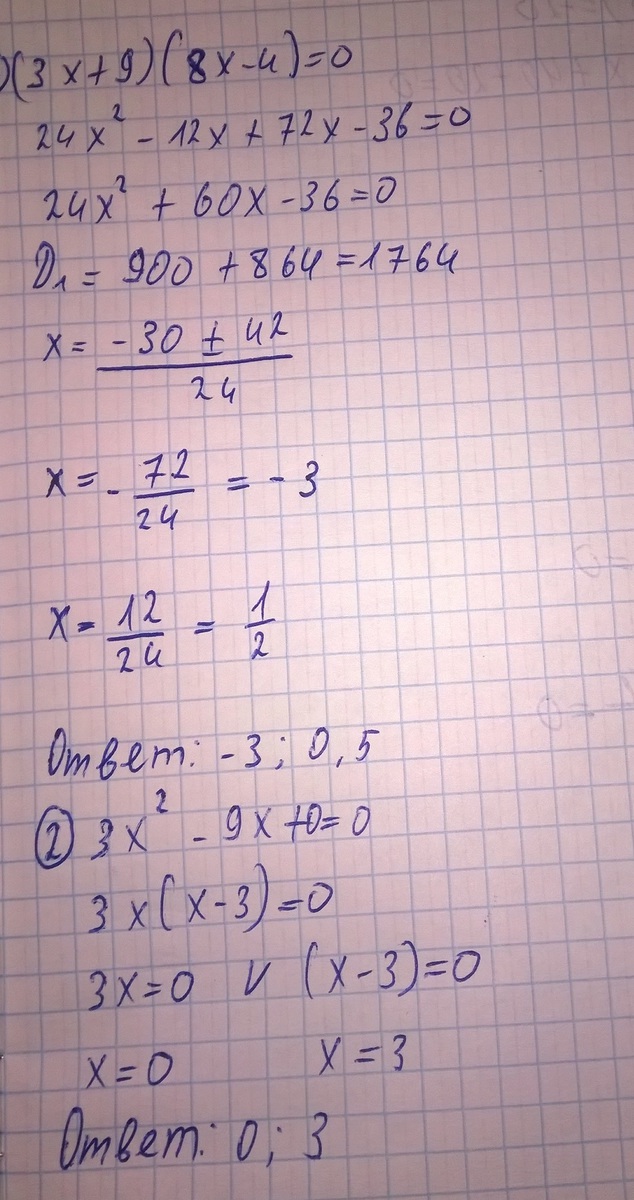 )(3x+9)(8x-4)=0
24x² - 12x + 72x - 36=0
24x² + 60x - 36=0
D₁ = 900 + 864 = 1764
x = (-30 ± 42)/24
x = - 72/24 = - 3
x = 12/24 = 1/2
Ответ: -3; 0,5
② 3x² - 9x +0=0
3x(x-3)=0
3x=0 v (x-3)=0
x=0 x=3
Ответ: 0; 3